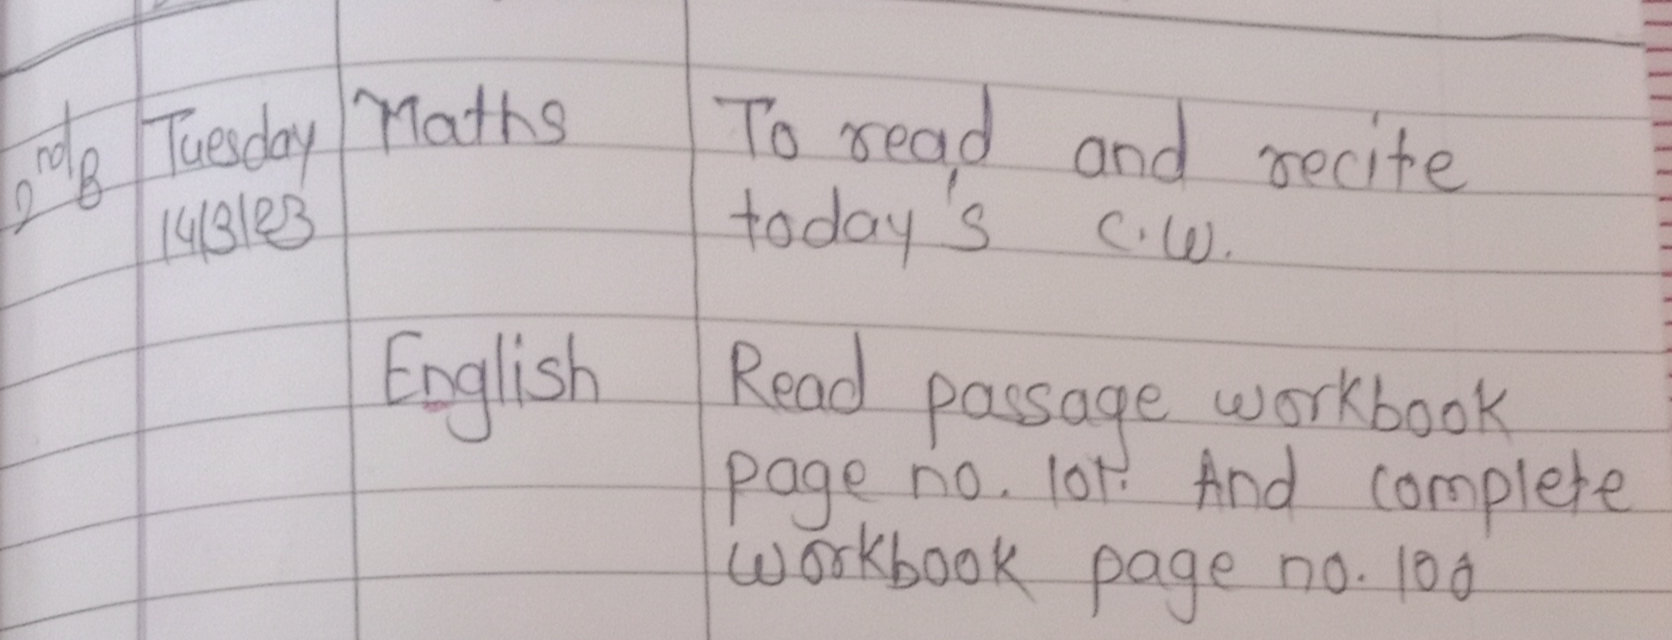 2nd B Tuesday Maths To read and recite
14/3/23 today's C.W.
English Read passage workbook
page no. 101. And complete
workbook page no. 100